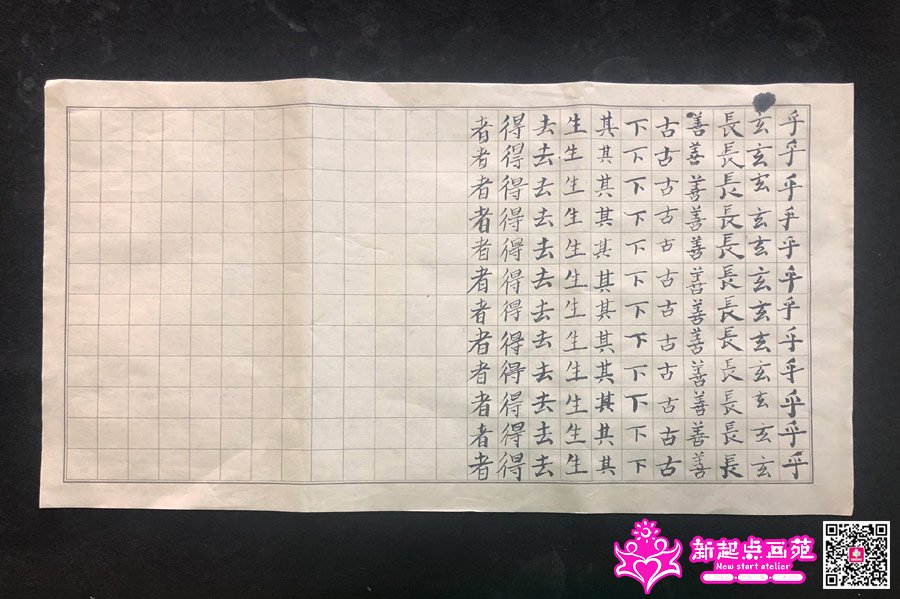 乎乎乎乎乎乎乎乎乎乎乎乎
玄玄玄玄玄玄玄玄玄玄玄玄
長長長長長長長長長長長長
善善善善善善善善善善善善
古古古古古古古古古古古古
下下下下下下下下下下下下
其其其其其其其其其其其其
生生生生生生生生生生生生
去去去去去去去去去去去去
得得得得得得得得得得得得
者者者者者者者者者者者者
新起点画苑
New start atelier